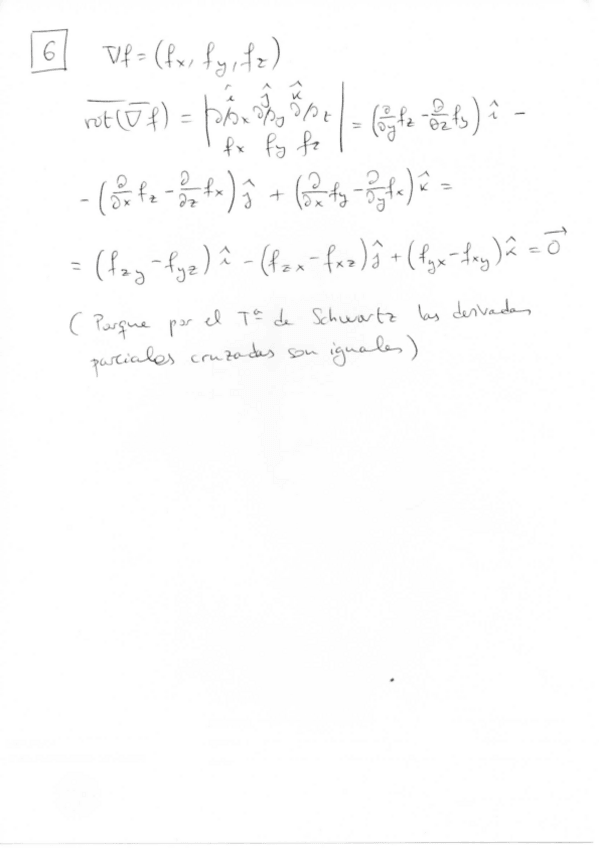 6 ∇f = (fx, fy, fz)
rot(∇f) = | î ĵ k̂ ∂/∂x ∂/∂y ∂/∂z fx fy fz | = (∂/∂y fz - ∂/∂z fy) î -
- (∂/∂x fz - ∂/∂z fx) ĵ + (∂/∂x fy - ∂/∂y fx) k̂ =
= (fzy - fyz) î - (fzx - fxz) ĵ + (fyx - fxy) k̂ = 0⃗
(Porque por el Tª de Schwartz las derivadas
parciales cruzadas son iguales)